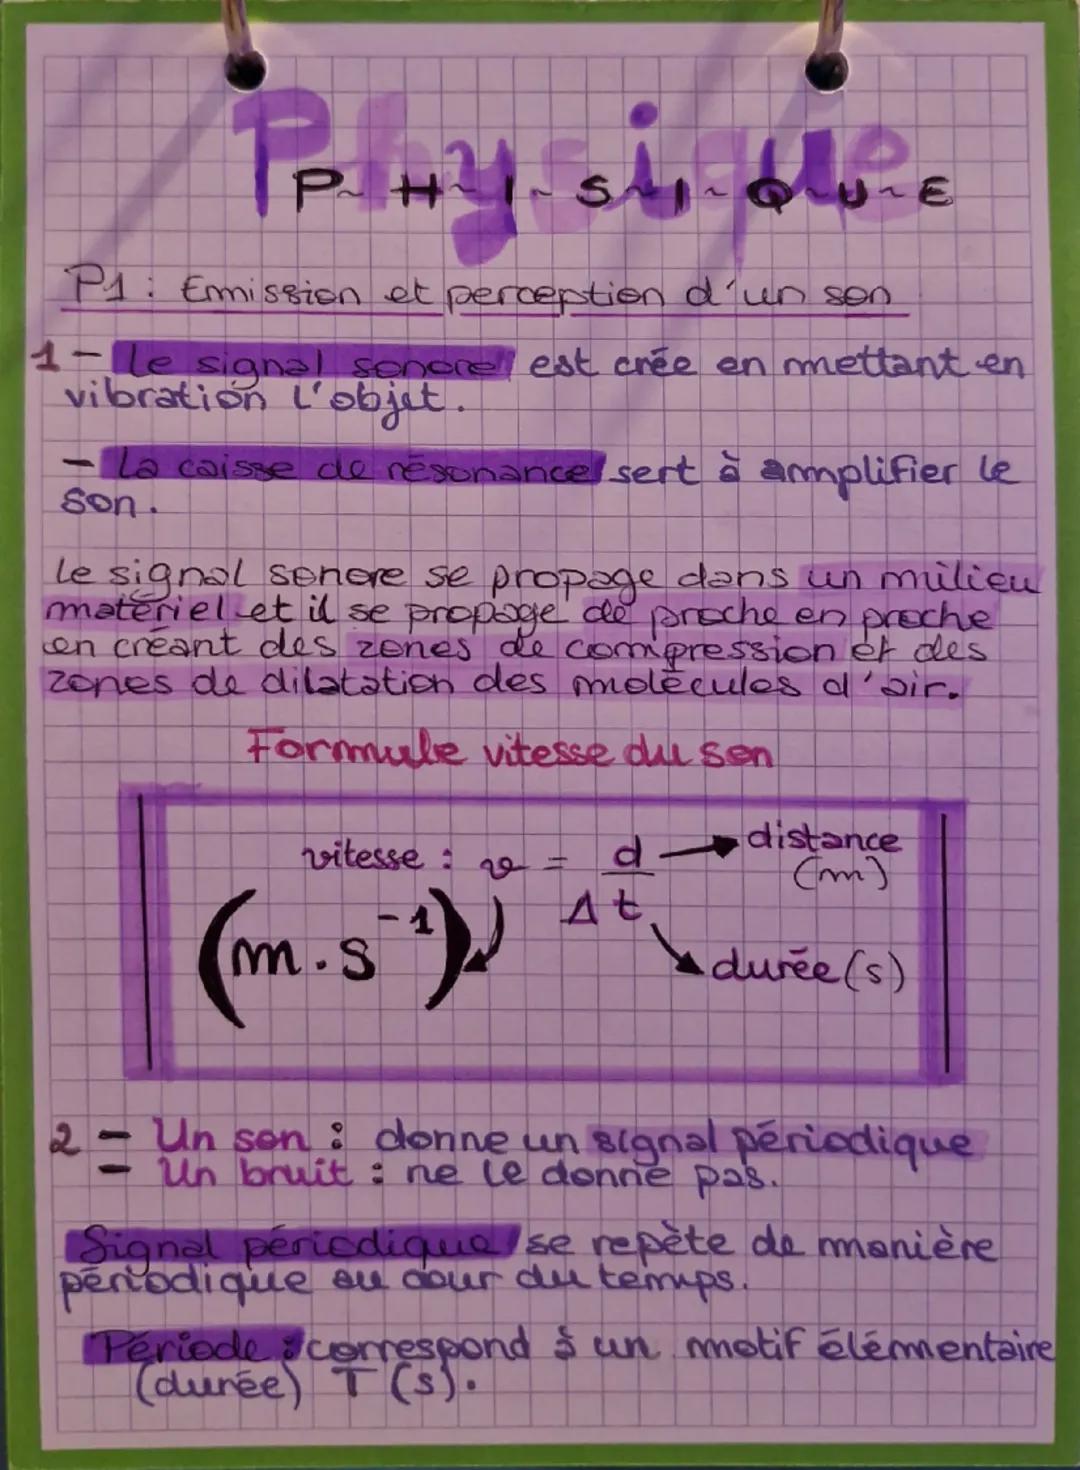 Physique
P~H~Y~S~I~Q~U~E
P1 : Emission et perception d'un son
1 - Le signal sonore est crée en mettant en
vibration l'objet.
- La caisse de résonance sert à amplifier le
son.
Le signal sonore se propage dans un milieu
matériel et il se propage de proche en proche
en créant des zones de compression et des
zones de dilatation des molécules d'air.
Formule vitesse du son
vitesse : v = d/Δt → distance (m)
(m.s⁻¹)
durée (s)
2 - Un son : donne un signal périodique
- Un bruit : ne le donne pas.
Signal périodique se repète de manière
périodique au cour du temps.
Période : correspond à un motif élémentaire
(durée) T (s).